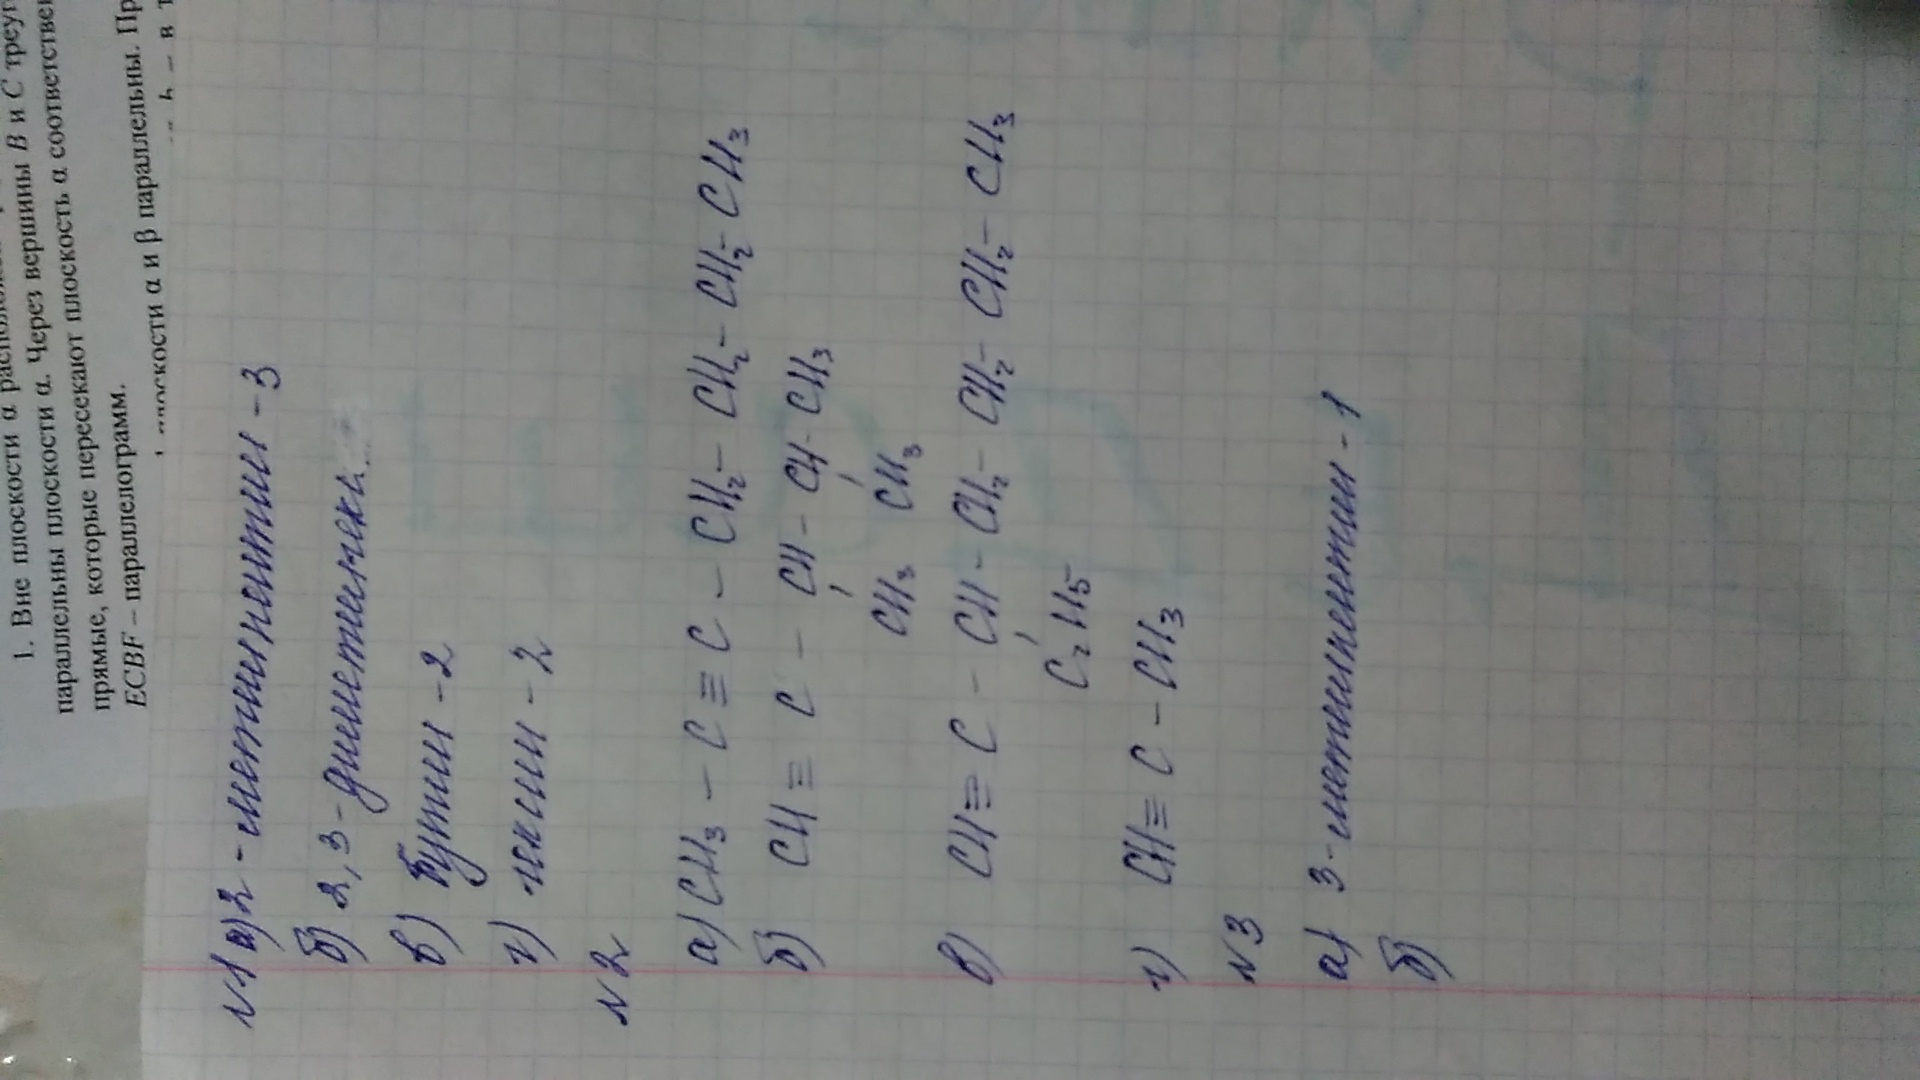 1. Вне плоскости α
параллельны плоскости α. Через вершины B и C треуг
прямые, которые пересекают плоскость α соответствен
ECBF – параллелограмм.
плоскости α и β параллельны. Пр
N1 а) 2 - метилпентин - 3
б) 2,3 - диметилгекс
в) бутин - 2
г) гексин - 2
N2
а) CH₃ - C ≡ C - CH₂ - CH₂ - CH₂ - CH₃
б) CH ≡ C - CH - CH - CH₃
CH₃ CH₃
в) CH ≡ C - CH - CH₂ - CH₂ - CH₂ - CH₃
C₂H₅
г) CH ≡ C - CH₃
N3
а) 3 - метилпентин - 1
б)